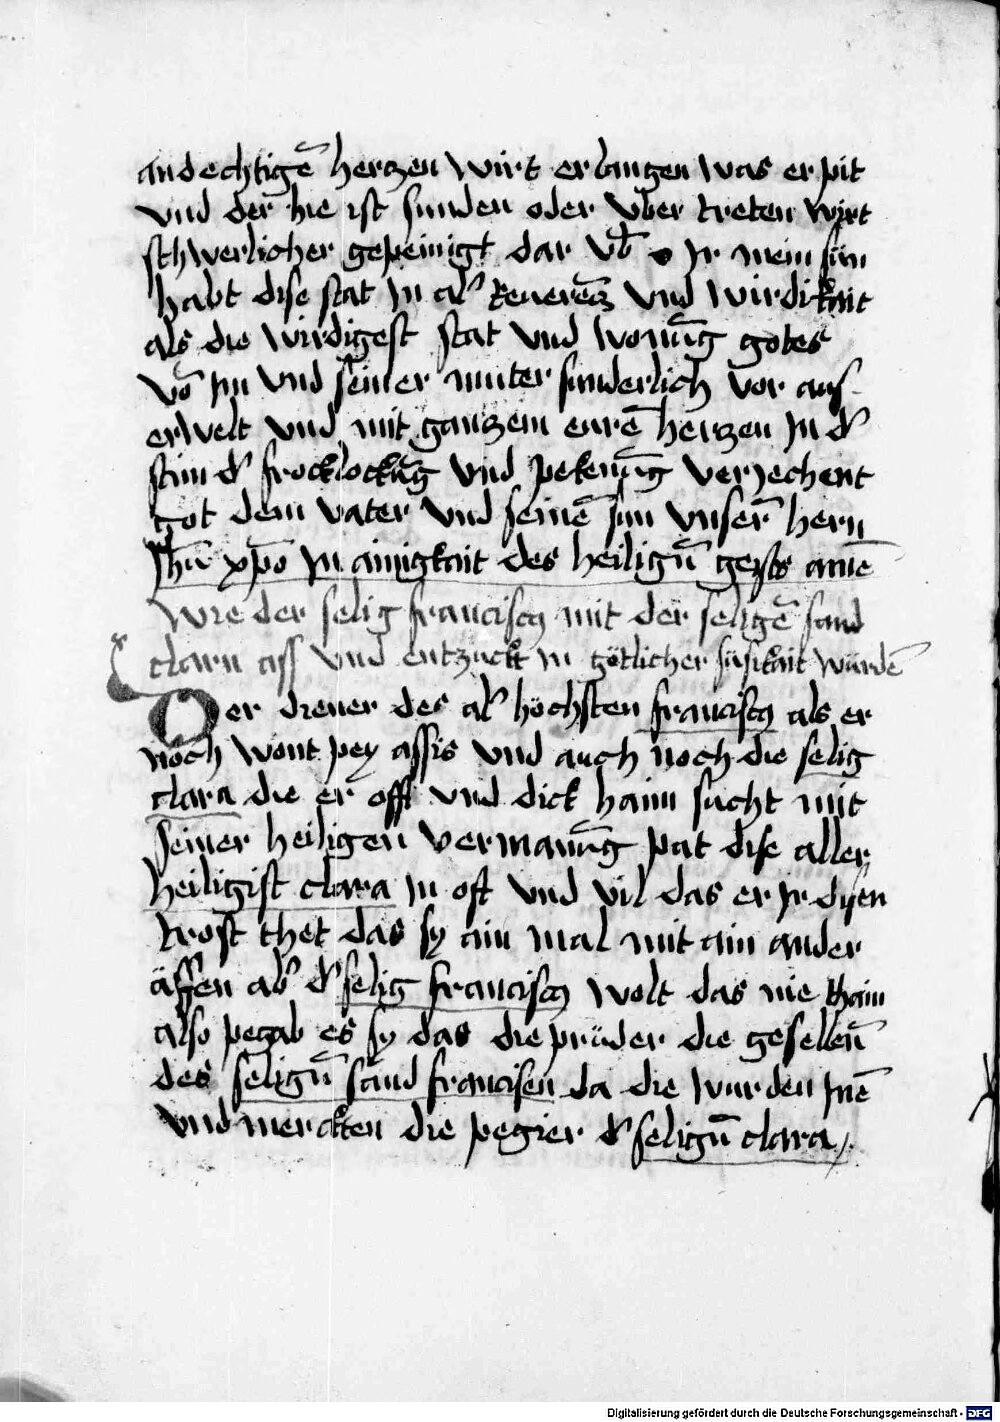 andechtigē herzen wirt erlangen was er pit
vnd der hie ist sunden oder vber treten wirt
schwerlicher gepeinigt dar vb̄ o jr mein sün
habt dise stat jn al' Reuerēcz vnd wirdikait
als die wirdigest stat vnd wonūg gotes
vō jm vnd seiner muter sunderlich vor aus-
erwelt vnd mit ganzem eurē herzen jn d'
stim d' frocklockūg vnd pekenūg verjechent
got dem vater vnd seinē sun vnserm̄ hern
Jhū xp̄o jn ainigkait des heiligū geysts amē
Wie der selig franciscꝰ mit der seligē sand
claru ass vnd entzuckt in götlicher süsikait würdē
Der diener des al' höchsten franciscꝰ als er
noch wont pey assis vnd auch noch die selig
clara die er offt vnd dick haim sucht mit
seiner heiligen vermanūg pat dise aller
heiligist clara jn oft vnd vil das er jr disen
trost thet das sy ain mal mit ain ander
ässen ab' d' selig franciscꝰ wolt das nie thain
also pegab es sy das die prüder die gesellen̄
des seligū sand francisen da die wurden jnē
vnd merckten die pegier d' seligū clara
Digitalisierung gefördert durch die Deutsche Forschungsgemeinschaft - DFG